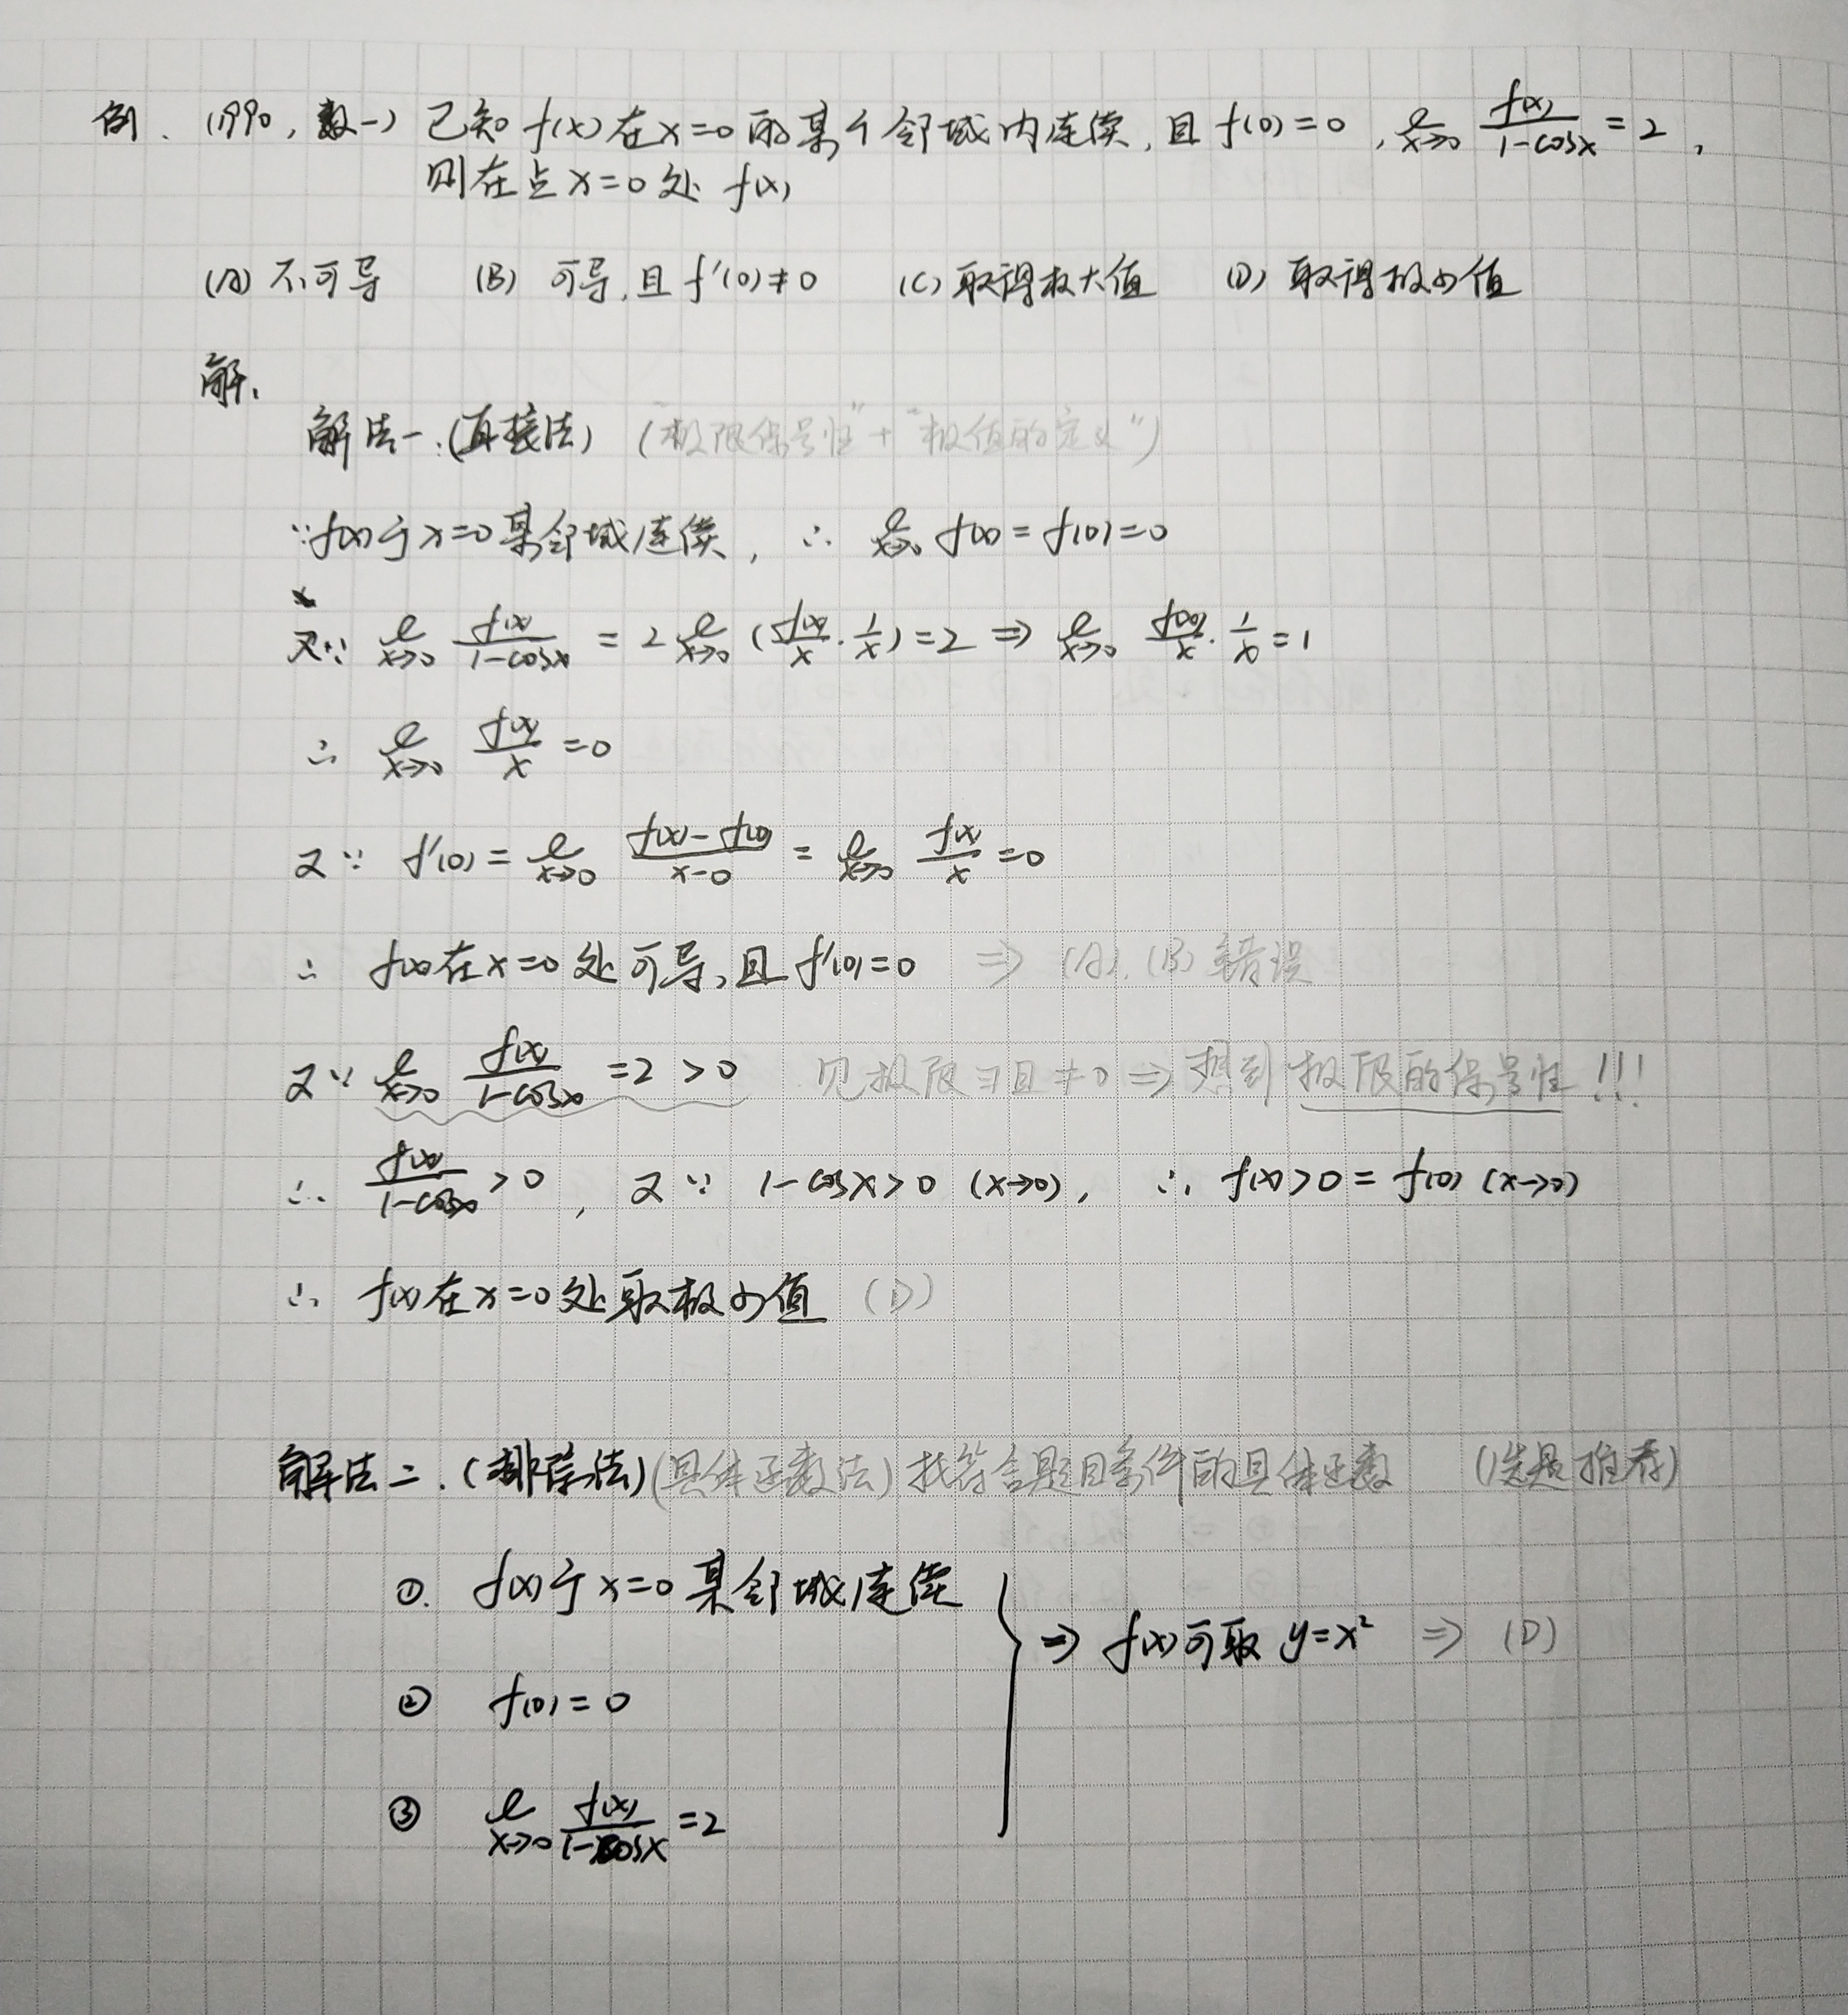 例. (1990, 数一) 已知 f(x) 在 x=0 的某个邻域内连续, 且 f(0)=0, ℓ_{x→0} f(x)/(1-cosx) = 2,
则在点 x=0 处 f(x)
(A) 不可导 (B) 可导, 且 f'(0)≠0 (C) 取得极大值 (D) 取得极小值
解.
解法一.(直接法) ("极限保号性"+"极值的定义")
∵f(x)于x=0某邻域连续, ∴ ℓ_{x→0} f(x) = f(0)=0
又∵ ℓ_{x→0} f(x)/(1-cosx) = 2 ℓ_{x→0} (f(x)/x · 1/x) = 2 ⇒ ℓ_{x→0} f(x)/x · 1/x = 1
∴ ℓ_{x→0} f(x)/x = 0
又∵ f'(0) = ℓ_{x→0} (f(x)-f(0))/(x-0) = ℓ_{x→0} f(x)/x = 0
∴ f(x)在x=0处可导, 且f'(0)=0 ⇒ (A).(B) 错误
又∵ ℓ_{x→0} f(x)/(1-cosx) = 2 > 0 见极限∃且≠0 ⇒ 想到 极限的保号性!!!
∴ f(x)/(1-cosx) > 0, 又∵ 1-cosx>0 (x→0), ∴ f(x)>0=f(0) (x→0)
∴ f(x)在x=0处取极小值 (D)
解法二.(排除法)(具体函数法) 找符合题目条件的具体函数 (选题推荐)
①. f(x)于x=0某邻域连续
⇒ f(x)可取 y=x² ⇒ (D)
② f(0)=0
③ ℓ_{x→0} f(x)/(1-cosx) = 2